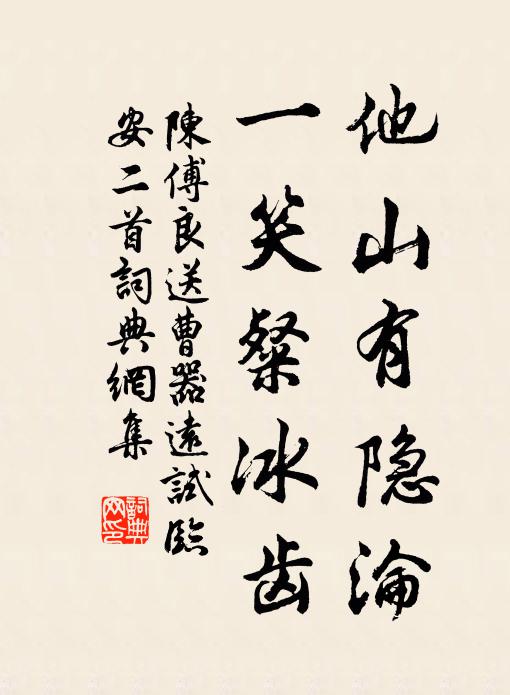 他山有隐淪
一笑粲冰齿
陳傅良送曹器遠試臨
安二首詞典網集
詞典
网印